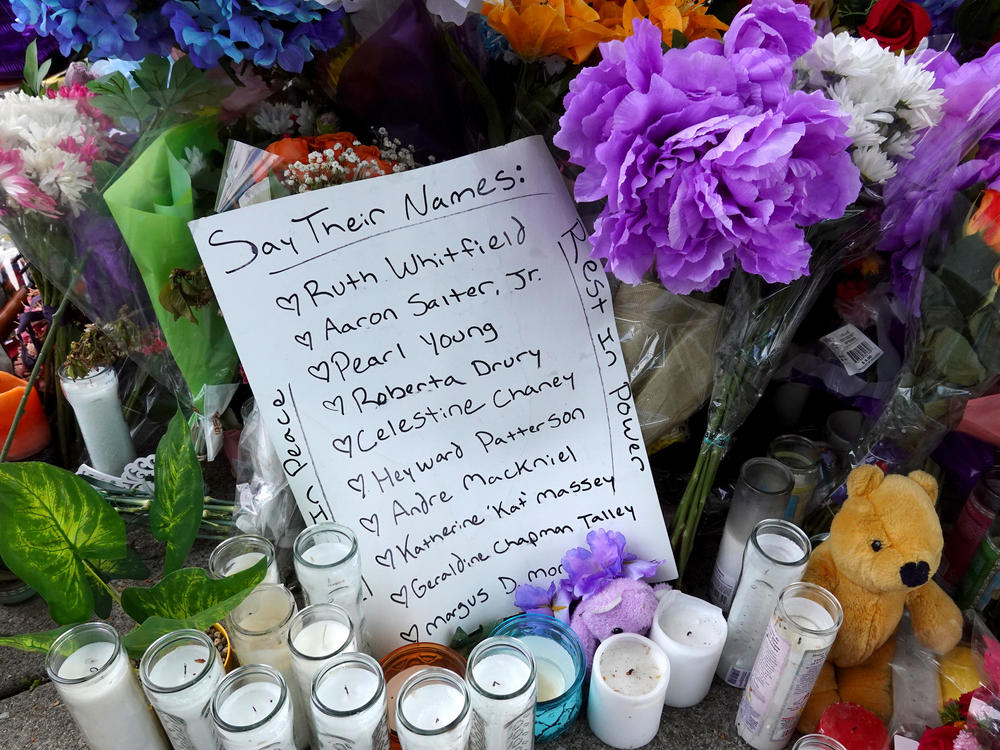 Say Their Names:
Ruth Whitfield
Aaron Salter, Jr.
Pearl Young
Roberta Drury
Celestine Chaney
Heyward Patterson
Andre Mackniel
Katherine "Kat" Massey
Geraldine Chapman Talley
Margus D. Mor
Rest In Power
In Peace